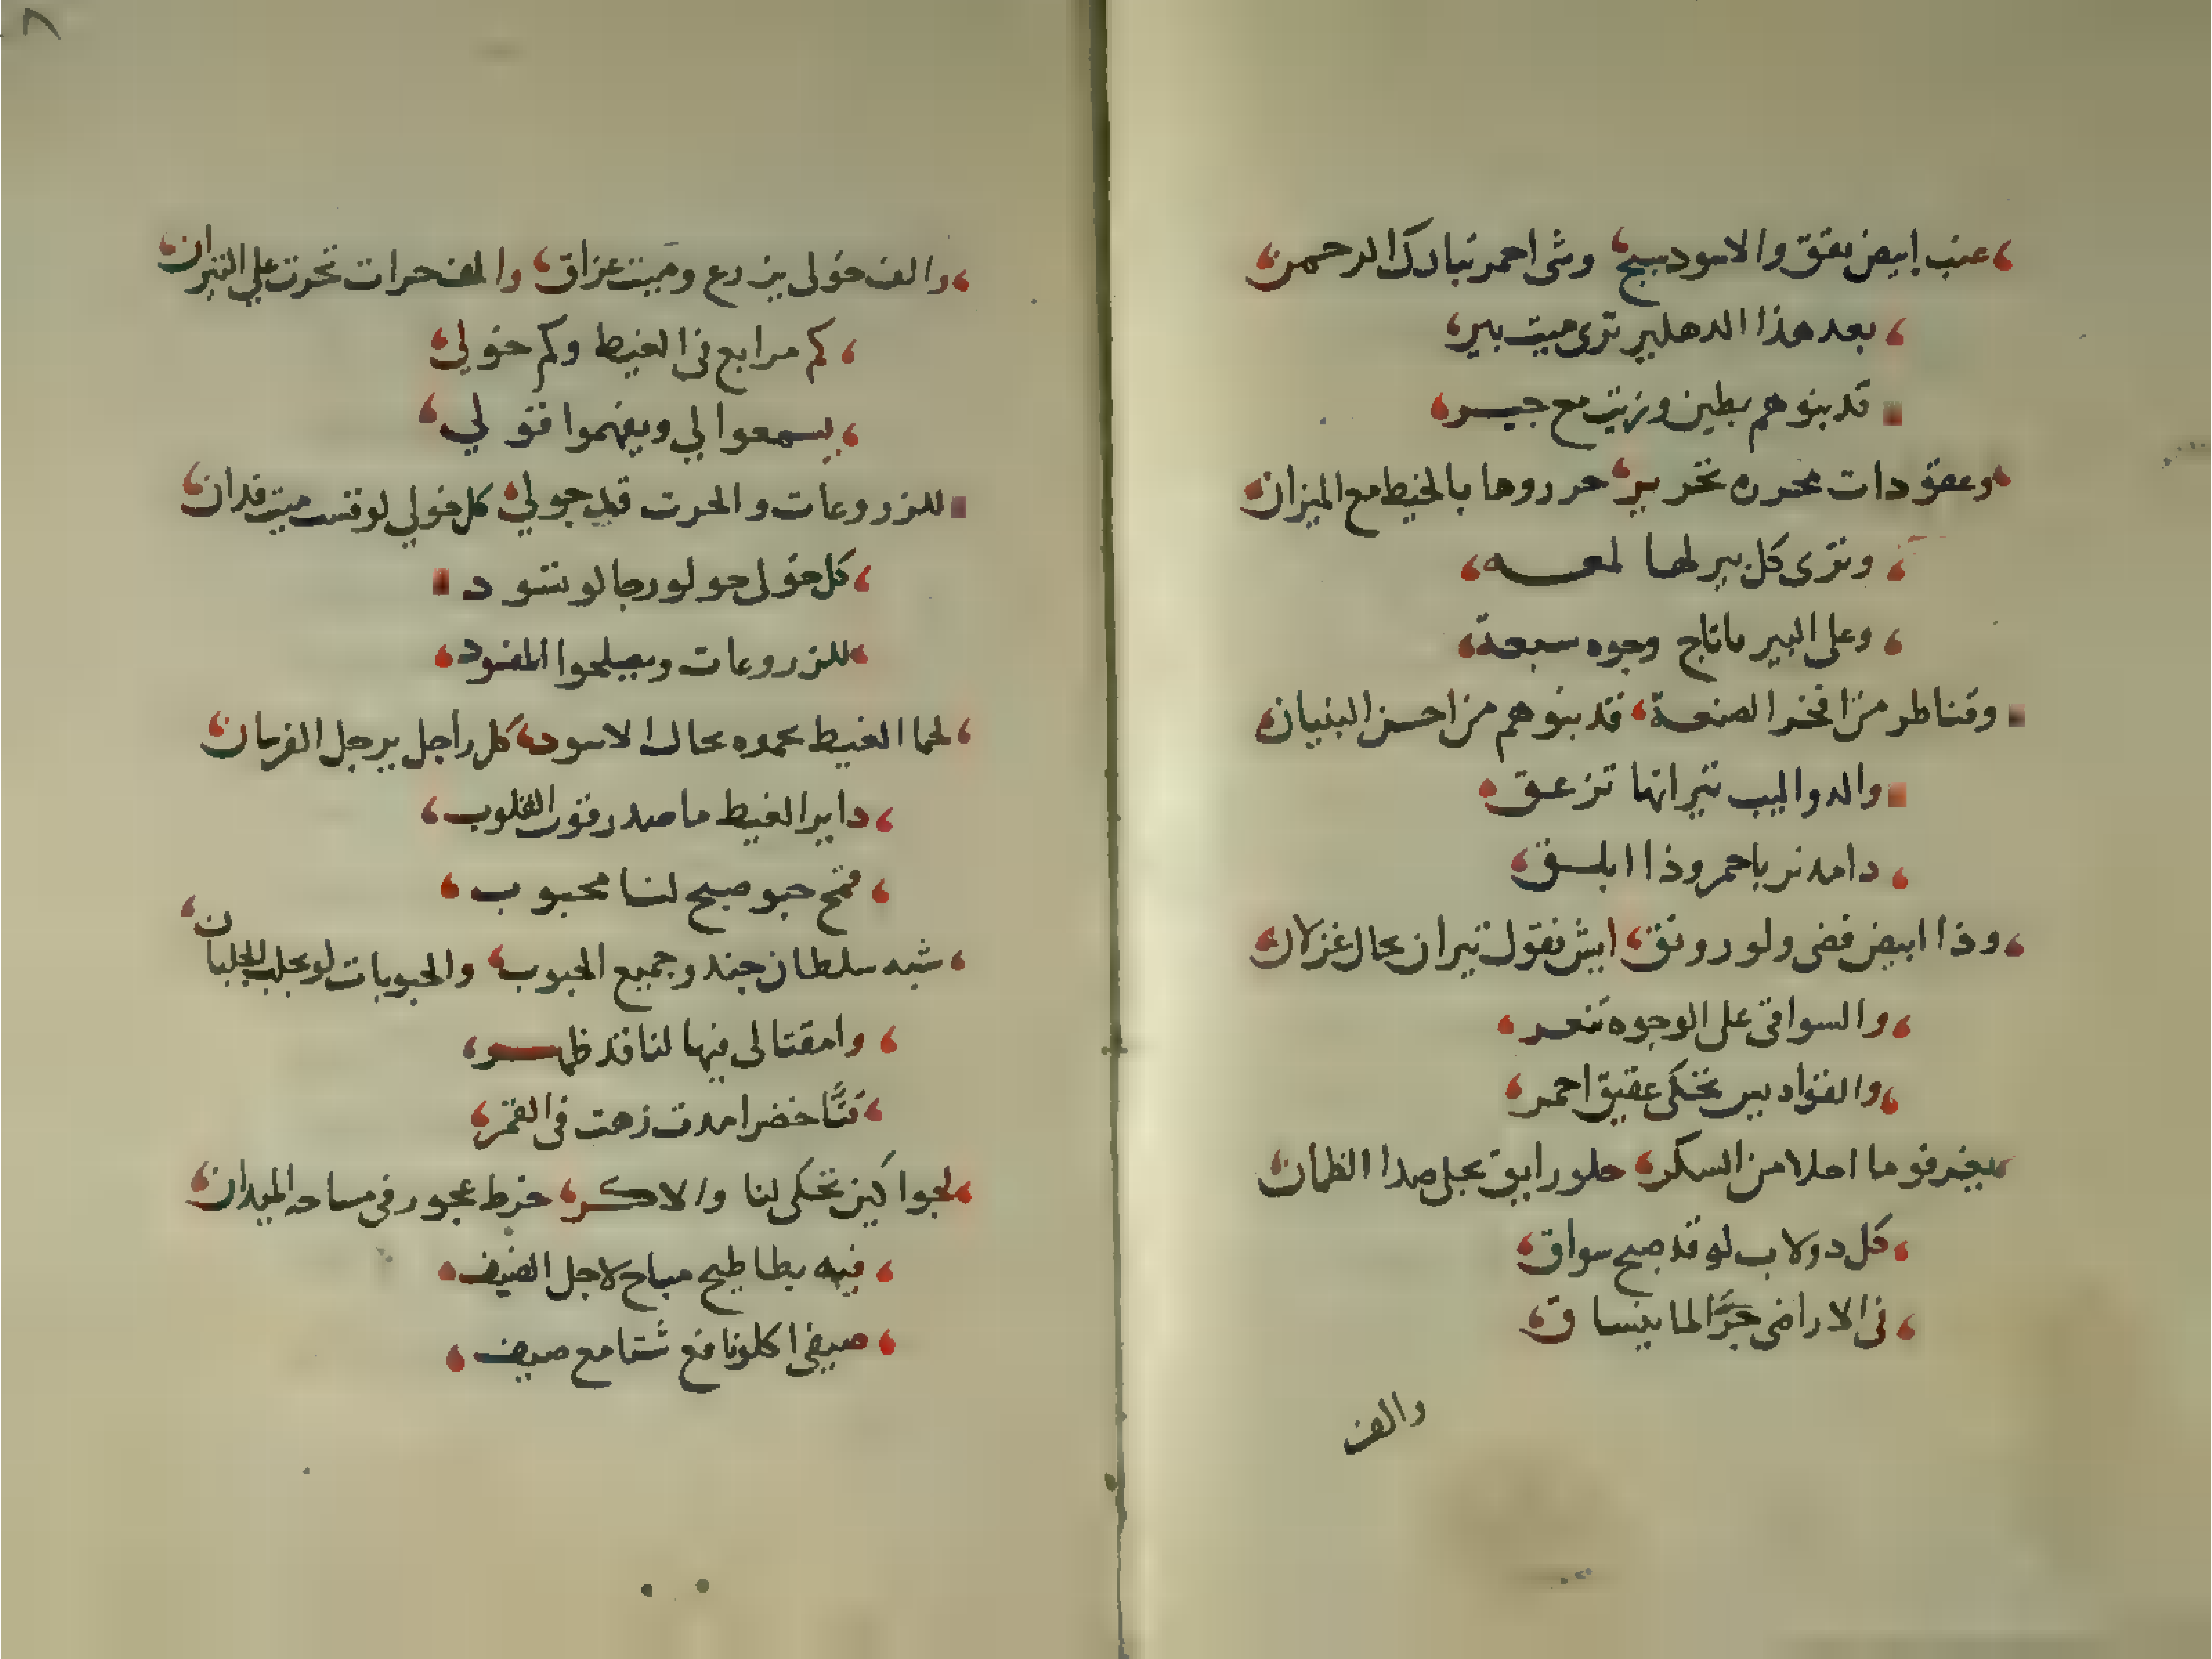 عنب ابيض يقق والاسود سبج وشى احمر تبارك الرحمن
بعد هذا الدهليز ترى ميت بير
قد بنوهم بطين وزيت مع جير
وعقودات محرره تحرير حرروها بالخيط مع الميزان
وترى كل بير لها لمعه
وعلى البير ياتاج وجوه سبعة
وقناطر من افخر الصنعة قد بنوهم من احسن البنيان
والدواليب تيرانها تزعق
دامدنر باحمر وذا ابلق
وذا ابيض فضى ولو رونق ايش نقول تيران بحال غزلان
والسواقى على الوجوه تنعر
والقواديس تحكى عقيق احمر
يغرفو ما احلا من السكر حلو رايق يجلى صدا الظمان
كل دولاب لو قد صبح سواق
فى الاراضى جرَّا لما ينساق
والف
والف خولى يزرع وميت عزاق والف حرات تحرت على التيران
كم مرابع فى الغيط وكم خولى
يسمعوا لى ويفهموا قولى
للزروعات والحرت قبلى جولى كل خولى لو قست ميت فدان
كل خولى حولو رجا لو تسود
للزروعات ويصلحوا المفسود
لحما الغيط بحمده بحال الاسود كل راجل برجل الفرسان
داير الغيط ما صدر قوت القلوب
قمح حبو صبح لنا محبوب
شبه سلطان جند وجميع الحبوب والحبوبات لو تجلب الجلبان
وامقتا لى فيها لنا قد ظهر
قتَّا خضرا مدت زهت فى القمر
لجواكين تحكى لنا والاكر خرط عجور فى مساحه الميدان
فيه بطاطيح مباح لاجل الضيف
صيفى اكلونا مع شتا مع صيف